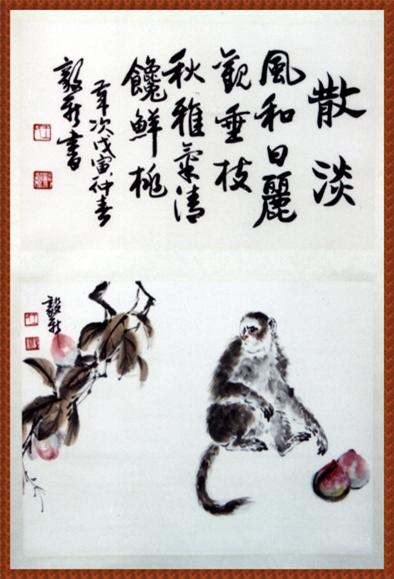 散淡
風和日麗
觀垂枝
秋雅氣清
饞鮮桃
年次戊寅仲春
毅新書
毅新